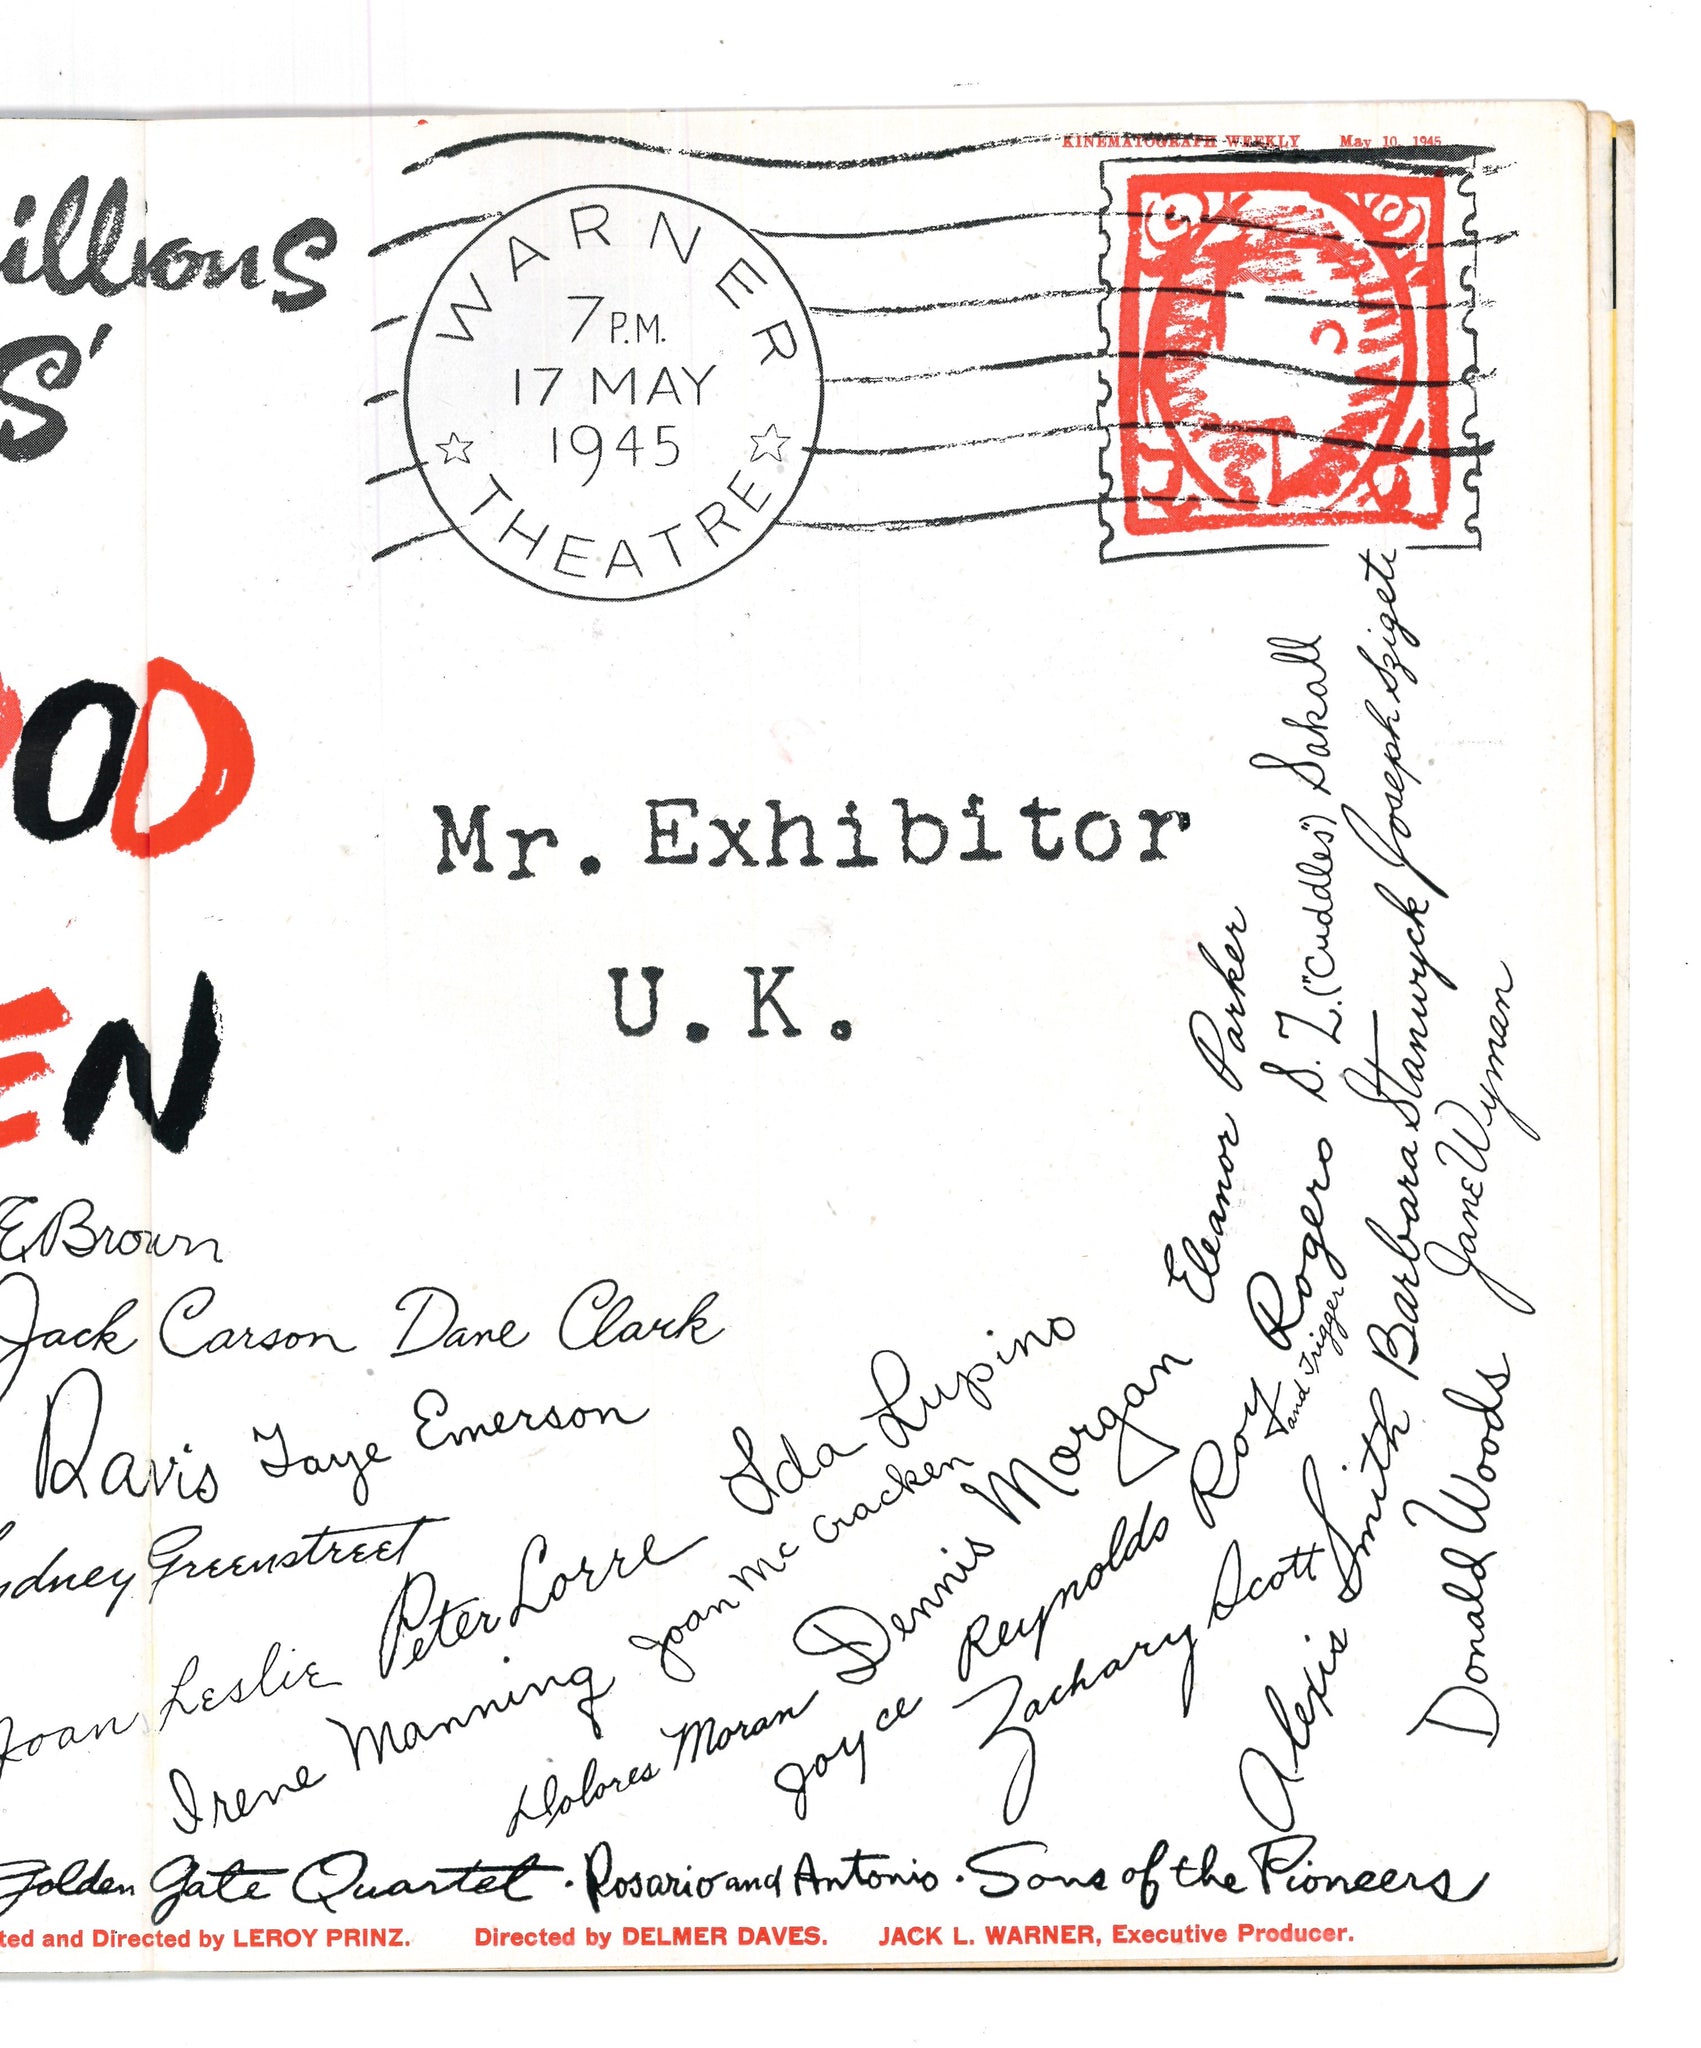 KINEMATOGRAPH WEEKLY May 10, 1945
illions
S'
WARNER
7 P.M.
17 MAY
1945
THEATRE
OOD
Mr. Exhibitor
U.K.
EN
E Brown
Jack Carson Dane Clark
Davis Faye Emerson
dney Greenstreet
Joan Leslie Peter Lorre Ida Lupino
Irene Manning Joan McCracken
Dolores Moran Dennis Morgan Eleanor Parker
Joyce Reynolds Roy Rogers S. Z. ("Cuddles") Sakall
and Trigger
Zachary Scott
Alexis Smith Barbara Stanwyck Joseph Szigeti
Donald Woods Jane Wyman
Golden Gate Quartet · Rosario and Antonio · Sons of the Pioneers
ted and Directed by LEROY PRINZ. Directed by DELMER DAVES. JACK L. WARNER, Executive Producer.